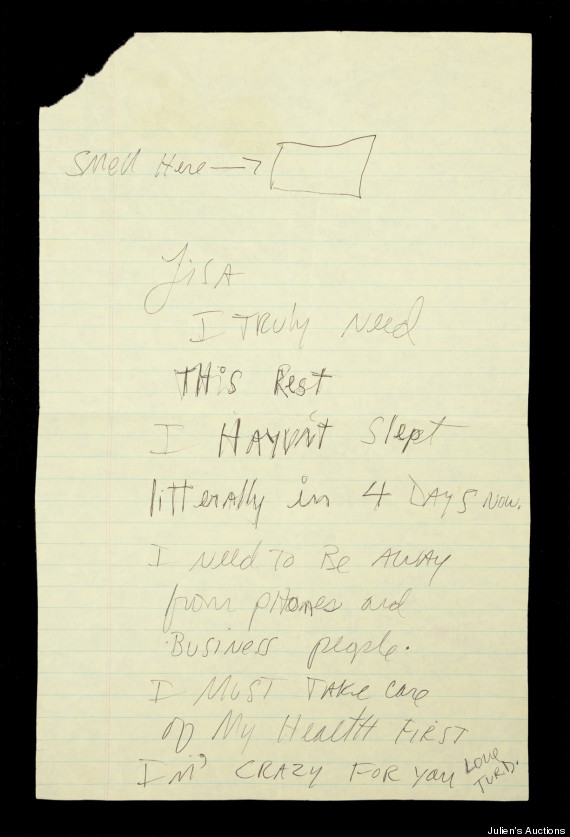 Smell Here
Lisa
I TRuly Need
THis Rest
I HAvent Slept
litterally in 4 DAYS Now.
I Need To Be AWAY
from pHones and
Business people.
I MUST TAKE care
of My HeaLTH FIRST
I'm CRAZY FOR you
Love
TURD.
Julien's Auctions